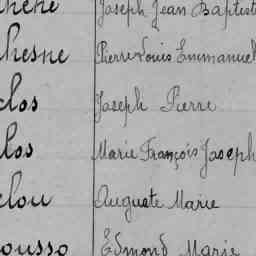 Joseph Jean Baptist
hesne Pierre Louis Emmanuel
clos Joseph Pierre
los Marie François Joseph
clou Auguste Marie
ousso Edmond Marie